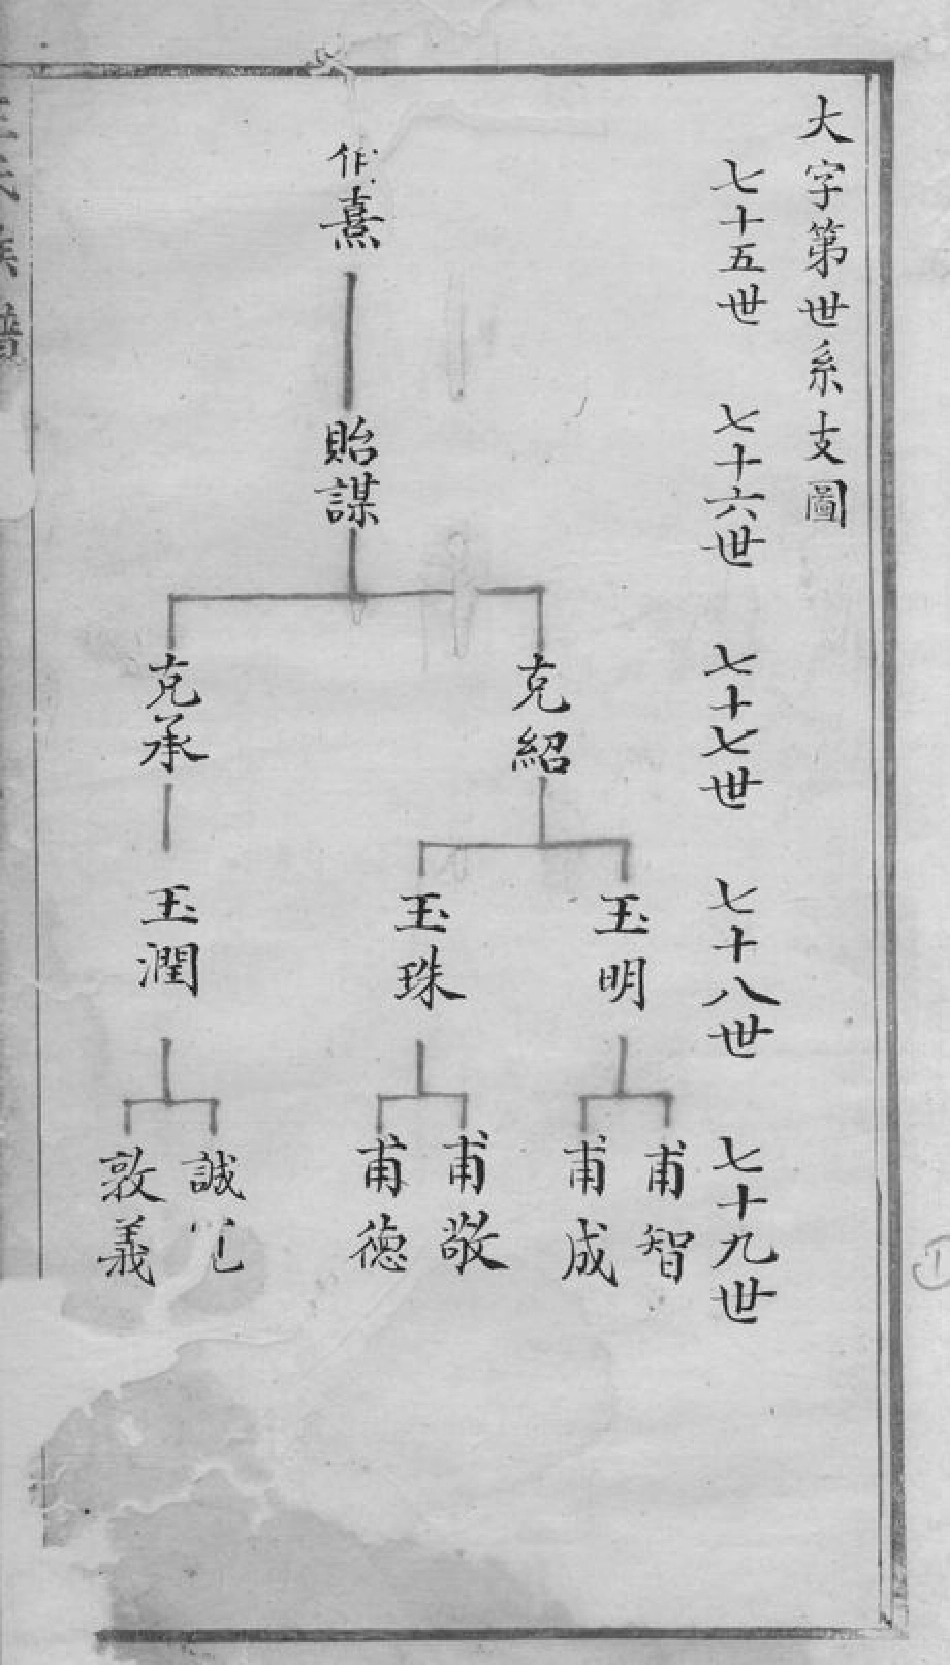 大字第世系支圖
七十五世
七十六世
七十七世
七十八世
七十九世
熹
貽謀
克紹
克承
玉明
玉珠
玉潤
甫智
甫成
甫敬
甫德
誠
敦義
氏族譜